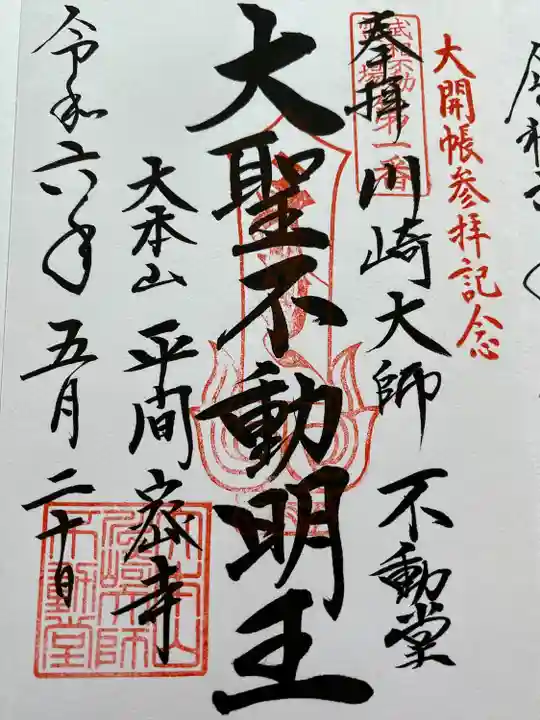 大開帳参拝記念
武相不動
霊場
第一番
奉拝
川崎大師 不動堂
大聖不動明王
大本山 平間密寺
令和六年五月二十日
不動堂